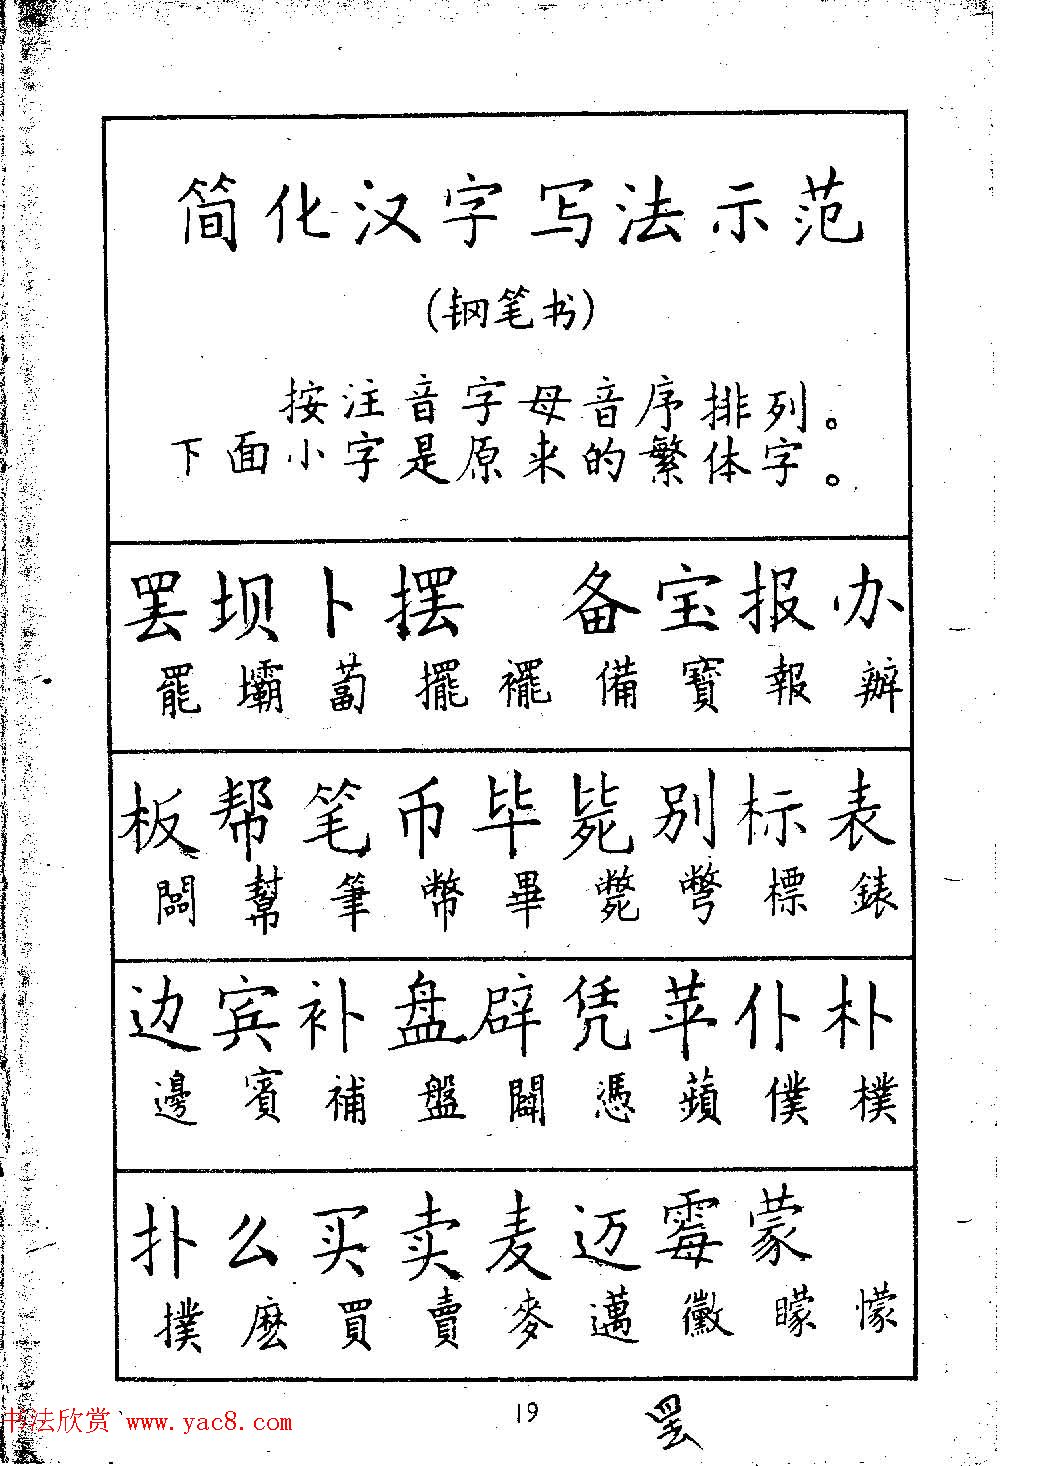 简化汉字写法示范
(钢笔书)
按注音字母音序排列。
下面小字是原来的繁体字。
罢坝卜摆 备宝报办
罷壩蔔擺襬備寶報辦
板帮笔币毕毙别标表
闆幫筆幣畢斃彆標錶
边宾补盘辟凭苹仆朴
邊賓補盤闢憑蘋僕樸
扑么买卖麦迈霉蒙
撲麽買賣麥邁黴矇懞
19
罢
书法欣赏 www.yac8.com